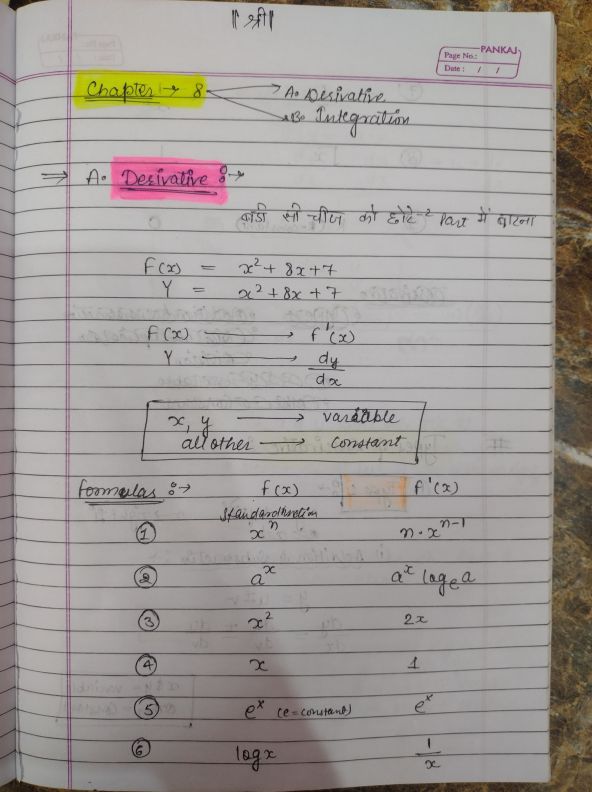 ॥ श्री ॥
PANKAJ
Page No.:
Date : / /
Chapter → 8 → A. Derivative
→ B. Integration
⇒ A. Derivative :→
बडी सी चीज को छोटे-2 Part में बाटना
F(x) = x² + 8x + 7
Y = x² + 8x + 7
F(x) → f'(x)
Y → dy/dx
x, y → variable
all other → constant
Formulas :→ f(x) f'(x)
standard function
① xⁿ n·xⁿ⁻¹
② aˣ aˣ logₑa
③ x² 2x
④ x 1
⑤ eˣ (e = constant) eˣ
⑥ log x 1/x